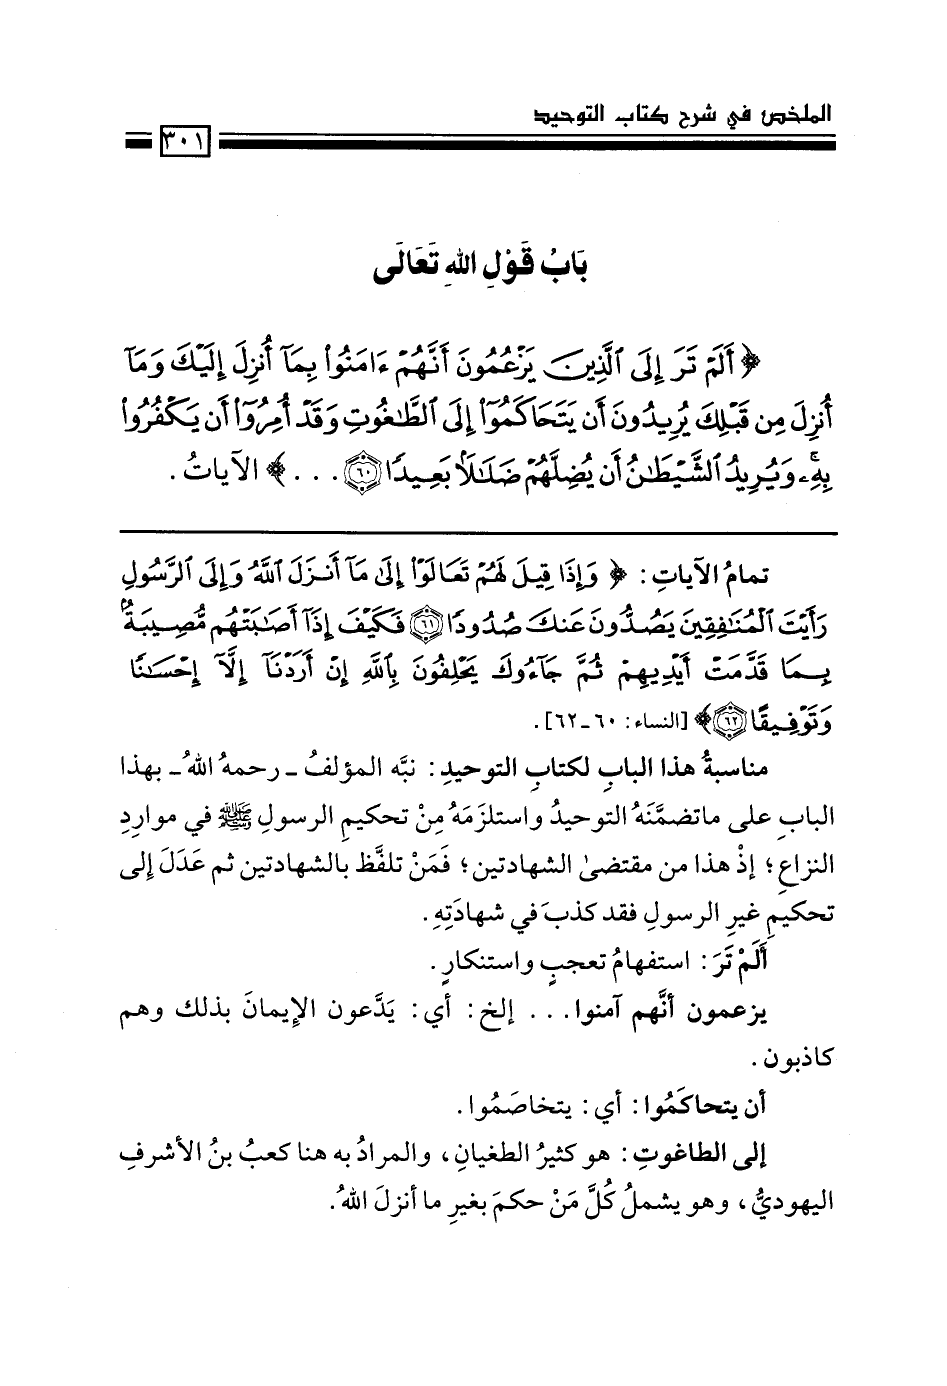 الملخص في شرح كتاب التوحيد
٣٠١
بَابُ قَوْلِ اللهِ تَعَالَى
﴿ أَلَمْ تَرَ إِلَى ٱلَّذِينَ يَزْعُمُونَ أَنَّهُمْ ءَامَنُوا۟ بِمَآ أُنزِلَ إِلَيْكَ وَمَآ
أُنزِلَ مِن قَبْلِكَ يُرِيدُونَ أَن يَتَحَاكَمُوٓا۟ إِلَى ٱلطَّٰغُوتِ وَقَدْ أُمِرُوٓا۟ أَن يَكْفُرُوا۟
بِهِۦ وَيُرِيدُ ٱلشَّيْطَٰنُ أَن يُضِلَّهُمْ ضَلَٰلًۢا بَعِيدًا ٦٠ . . . ﴾ الآياتُ .
تمامُ الآياتِ : ﴿ وَإِذَا قِيلَ لَهُمْ تَعَالَوْا۟ إِلَىٰ مَآ أَنزَلَ ٱللَّهُ وَإِلَى ٱلرَّسُولِ
رَأَيْتَ ٱلْمُنَٰفِقِينَ يَصُدُّونَ عَنكَ صُدُودًا ٦١ فَكَيْفَ إِذَآ أَصَٰبَتْهُم مُّصِيبَةٌۢ
بِمَا قَدَّمَتْ أَيْدِيهِمْ ثُمَّ جَآءُوكَ يَحْلِفُونَ بِٱللَّهِ إِنْ أَرَدْنَآ إِلَّآ إِحْسَٰنًا
وَتَوْفِيقًا ٦٢ ﴾ [النساء : ٦٠ـ٦٢] .
مناسبةُ هذا البابِ لكتابِ التوحيدِ : نبَّه المؤلفُ ـ رحمهُ اللهُ ـ بهذا
البابِ على ماتضمَّنَهُ التوحيدُ واستلزَمَهُ مِنْ تحكيمِ الرسولِ ﷺ في مواردِ
النزاعِ ؛ إذْ هذا من مقتضىٰ الشهادتين ؛ فَمَنْ تلفَّظ بالشهادتين ثم عَدَلَ إلى
تحكيمِ غيرِ الرسولِ فقد كذبَ في شهادَتِهِ .
أَلَمْ تَرَ : استفهامُ تعجبٍ واستنكارٍ .
يزعمون أنَّهم آمنوا . . . إلخ : أي : يَدَّعون الإيمانَ بذلك وهم
كاذبون .
أن يتحاكَمُوا : أي : يتخاصَمُوا .
إلى الطاغوتِ : هو كثيرُ الطغيانِ ، والمرادُ به هنا كعبُ بنُ الأشرفِ
اليهوديُّ ، وهو يشملُ كُلَّ مَنْ حكمَ بغيرِ ما أنزلَ اللهُ .